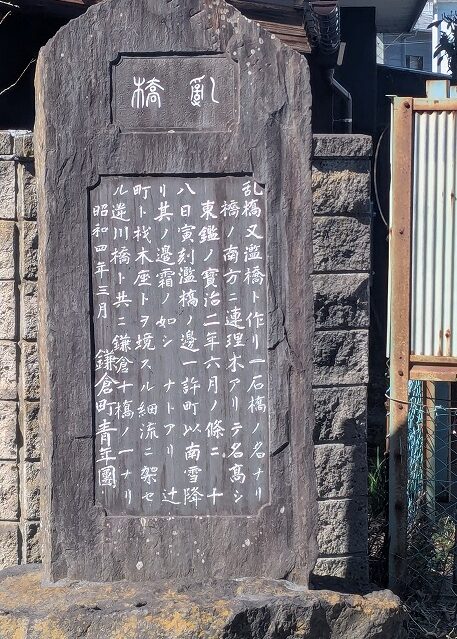 亂橋
乱橋又濫橋ト作リ一石橋ノ名ナリ
橋ノ南方ニ連理木アリテ名髙シ
東鑑ノ寳治二年六月ノ條ニ十
八日寅刻濫橋ノ邊一許町以南雪降
リ其ノ邊霜ノ如シナトアリ辻
町ト材木座トヲ境スル細流ニ架セ
ル逆川橋ト共ニ鎌倉十橋ノ一ナリ
昭和四年三月 鎌倉町青年團